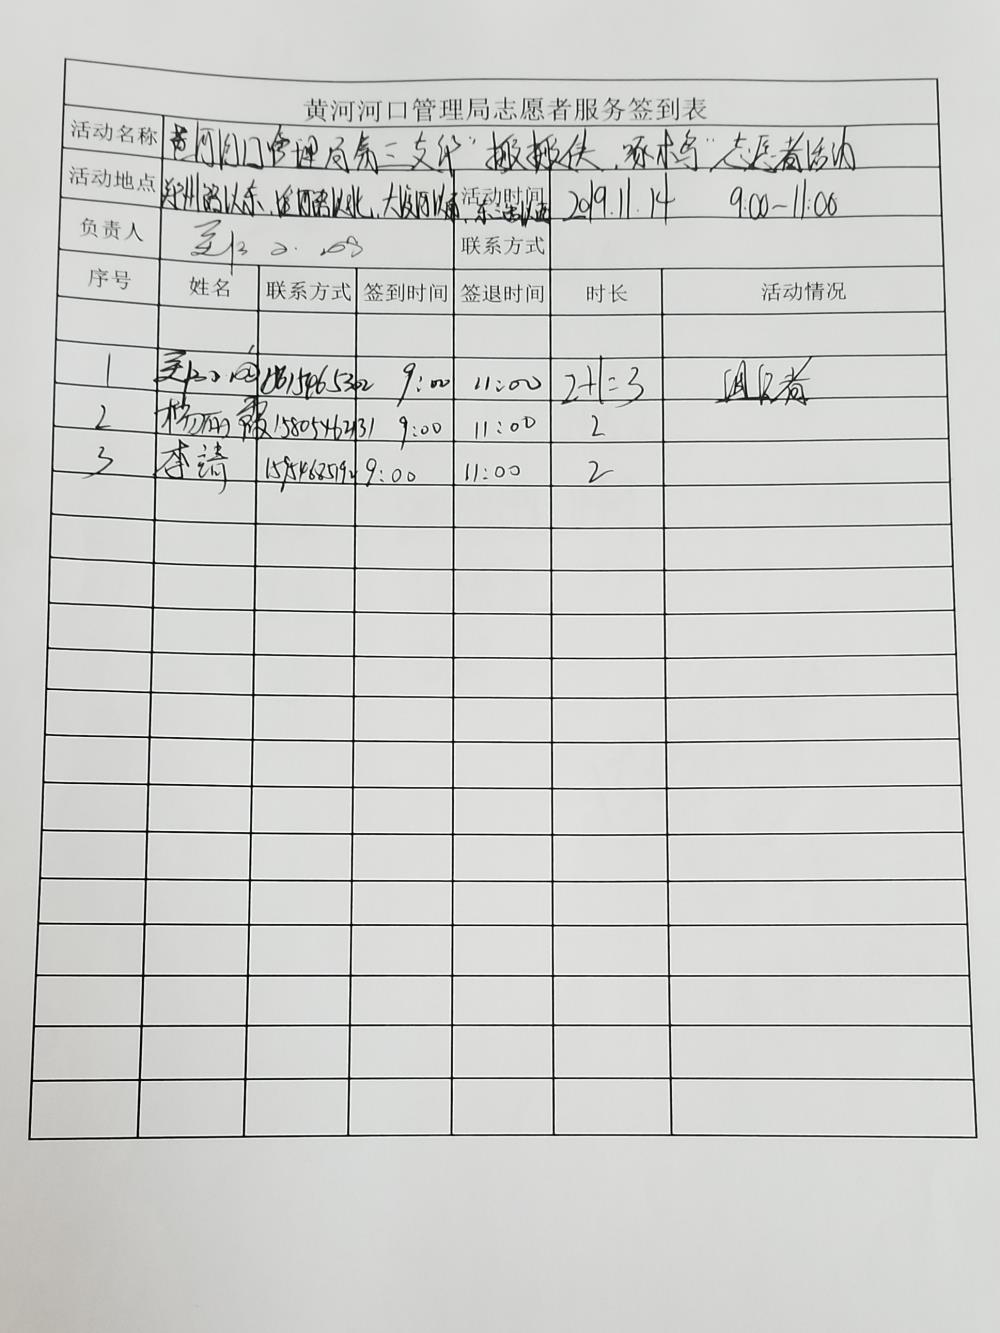 黄河河口管理局志愿者服务签到表
活动名称 黄河河口管理局第三支队"搬搬侠、啄木鸟"志愿者活动
活动地点 郑州路以东、以北、大渡河以南、东 活动时间 2019.11.14 9:00-11:00
负责人 联系方式
序号 姓名 联系方式 签到时间 签退时间 时长 活动情况
1 9:00 11:00 2+1=3 组织者
2 杨丽霞 9:00 11:00 2
3 李靖 9:00 11:00 2